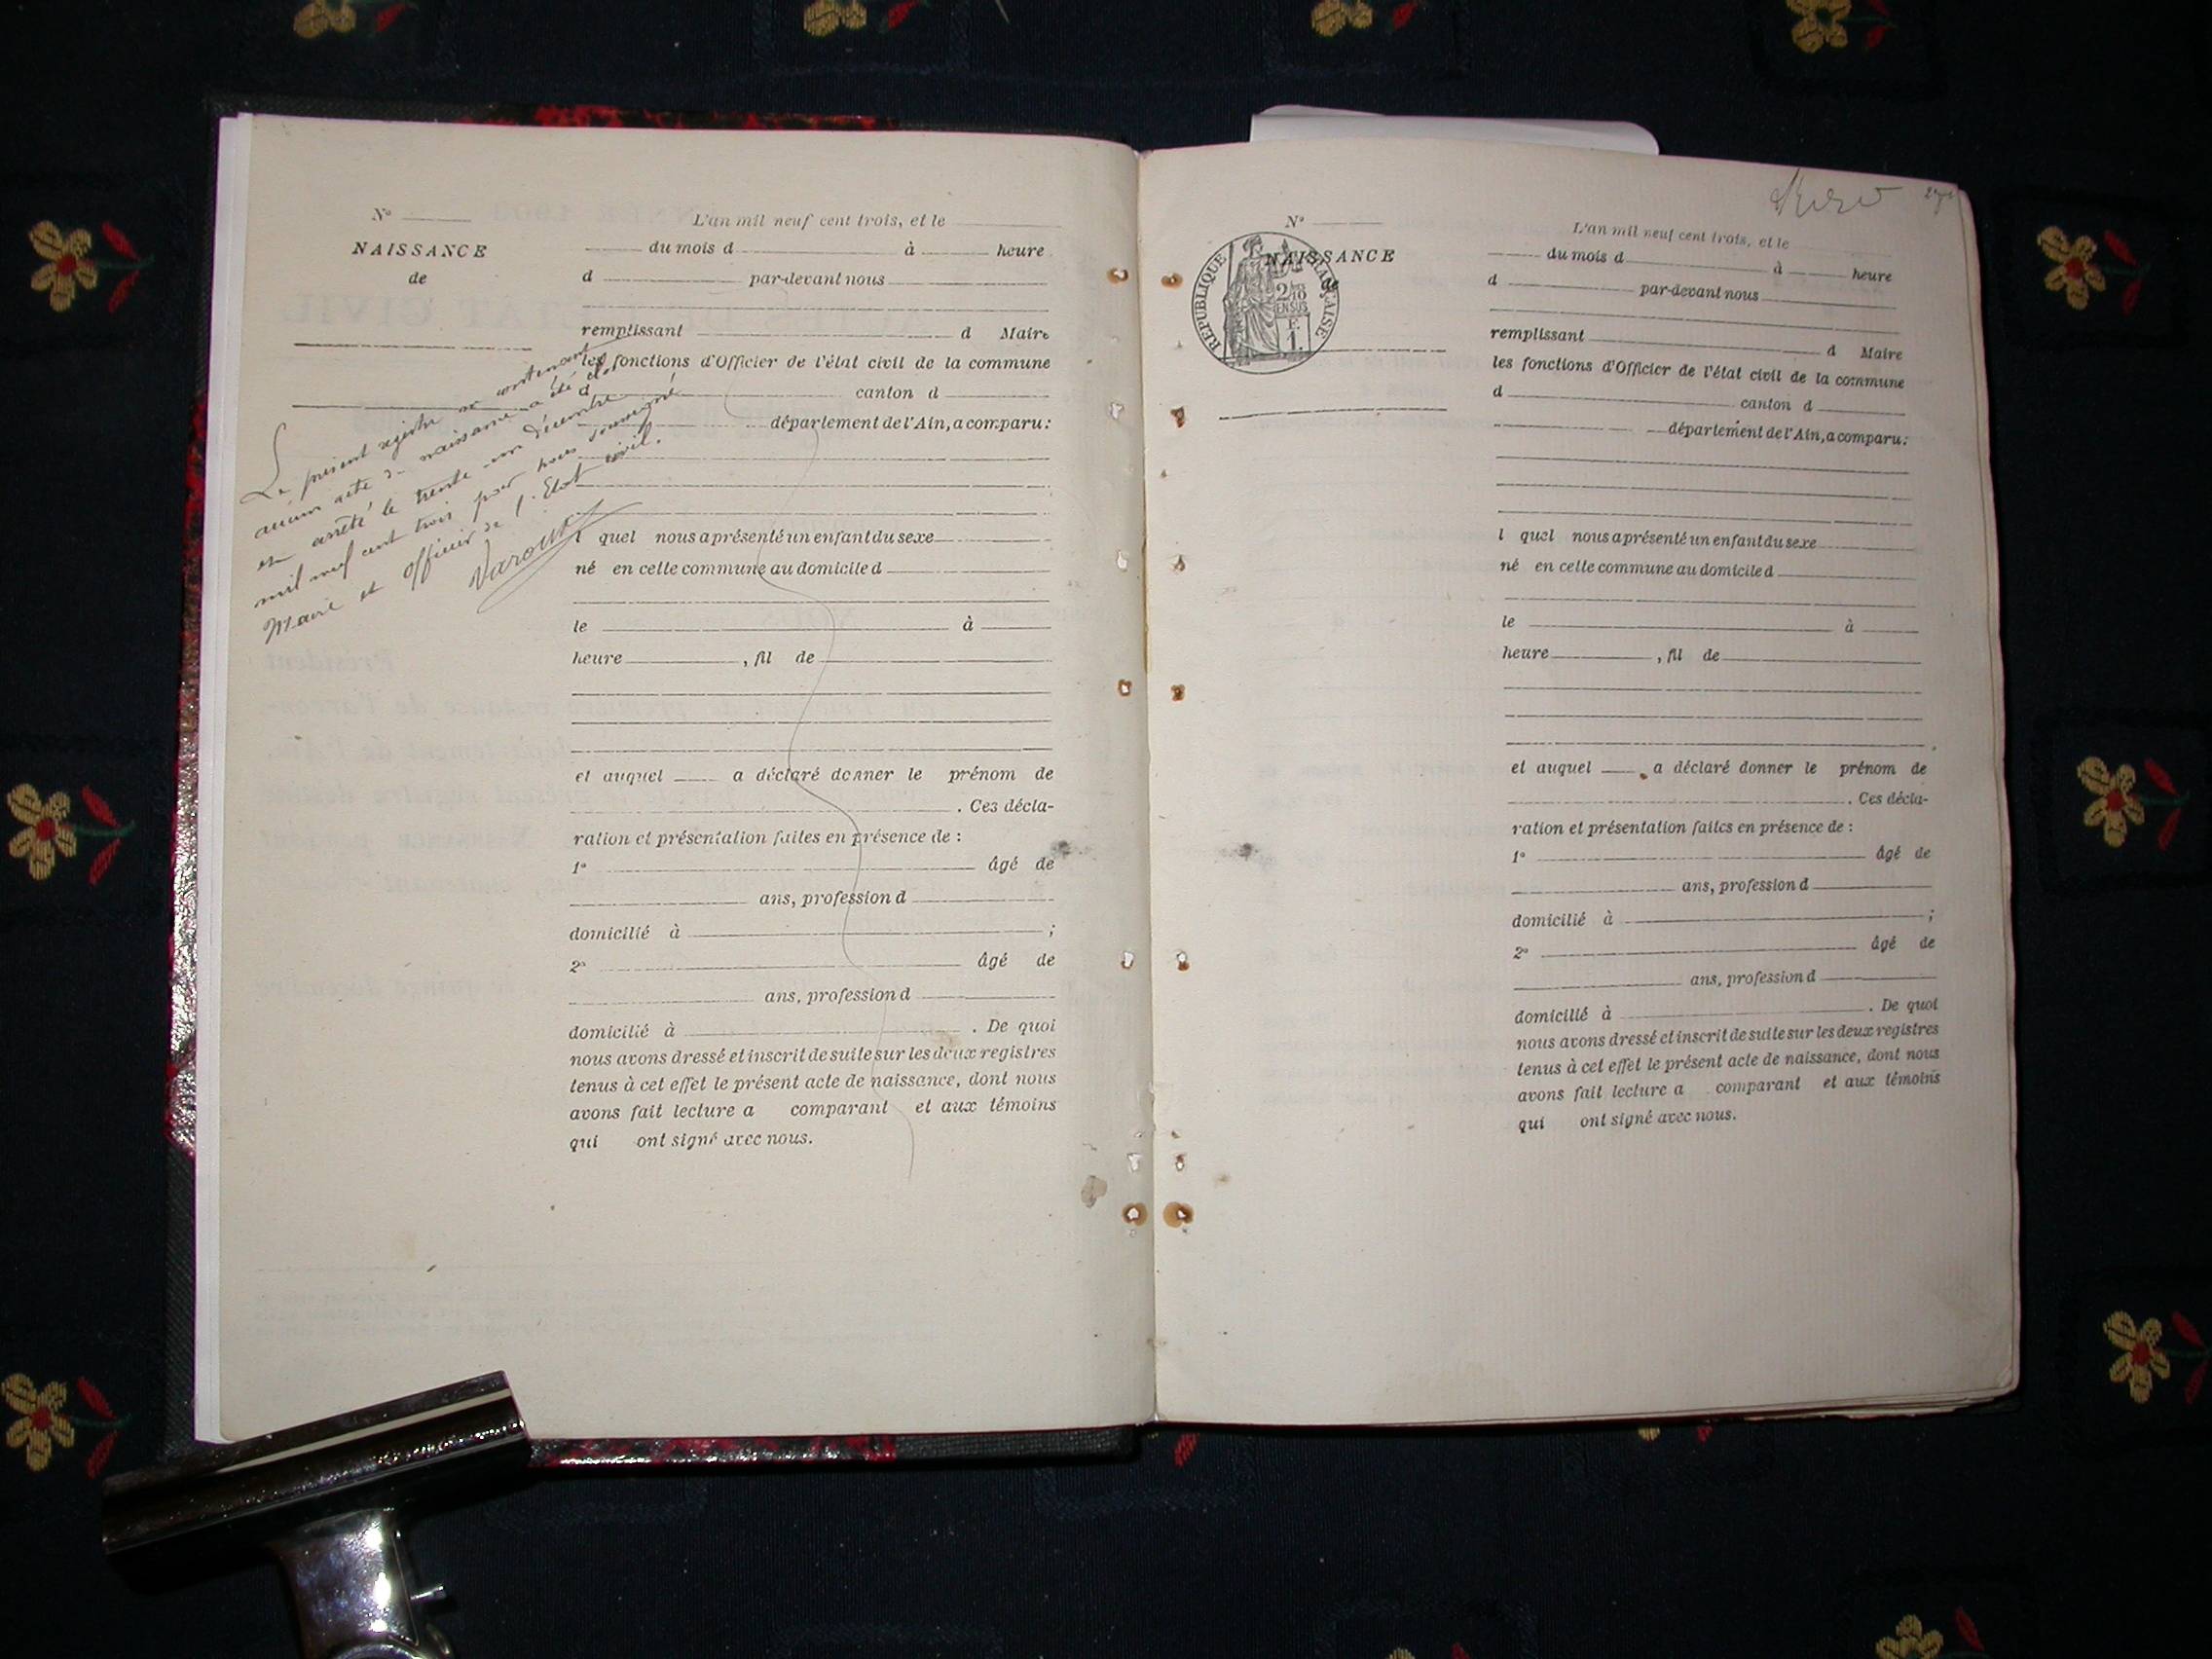 N°
NAISSANCE
de
L'an mil neuf cent trois, et le
du mois d à heure
d par-devant nous
remplissant d Maire
les fonctions d'Officier de l'état civil de la commune
d canton d
département de l'Ain, a comparu:
l quel nous a présenté un enfant du sexe
né en cette commune au domicile d
le à
heure , fil de
et auquel a déclaré donner le prénom de
. Ces décla-
ration et présentation faites en présence de :
1° âgé de
ans, profession d
domicilié à ;
2° âgé de
ans, profession d
domicilié à . De quoi
nous avons dressé et inscrit de suite sur les deux registres
tenus à cet effet le présent acte de naissance, dont nous
avons fait lecture a comparant et aux témoins
qui ont signé avec nous.
Le présent registre ne contenant
aucun acte de naissance a été clos
et arrêté le trente un décembre
mil neuf cent trois par nous soussigné
Maire et officier de l'Etat civil.
N°
NAISSANCE
de
REPUBLIQUE FRANÇAISE
2/10
EN SUS
F.
1.
L'an mil neuf cent trois, et le
du mois d à heure
d par-devant nous
remplissant d Maire
les fonctions d'Officier de l'état civil de la commune
d canton d
département de l'Ain, a comparu:
l quel nous a présenté un enfant du sexe
né en cette commune au domicile d
le à
heure , fil de
et auquel a déclaré donner le prénom de
. Ces décla-
ration et présentation faites en présence de :
1° âgé de
ans, profession d
domicilié à ;
2° âgé de
ans, profession d
domicilié à . De quoi
nous avons dressé et inscrit de suite sur les deux registres
tenus à cet effet le présent acte de naissance, dont nous
avons fait lecture a comparant et aux témoins
qui ont signé avec nous.